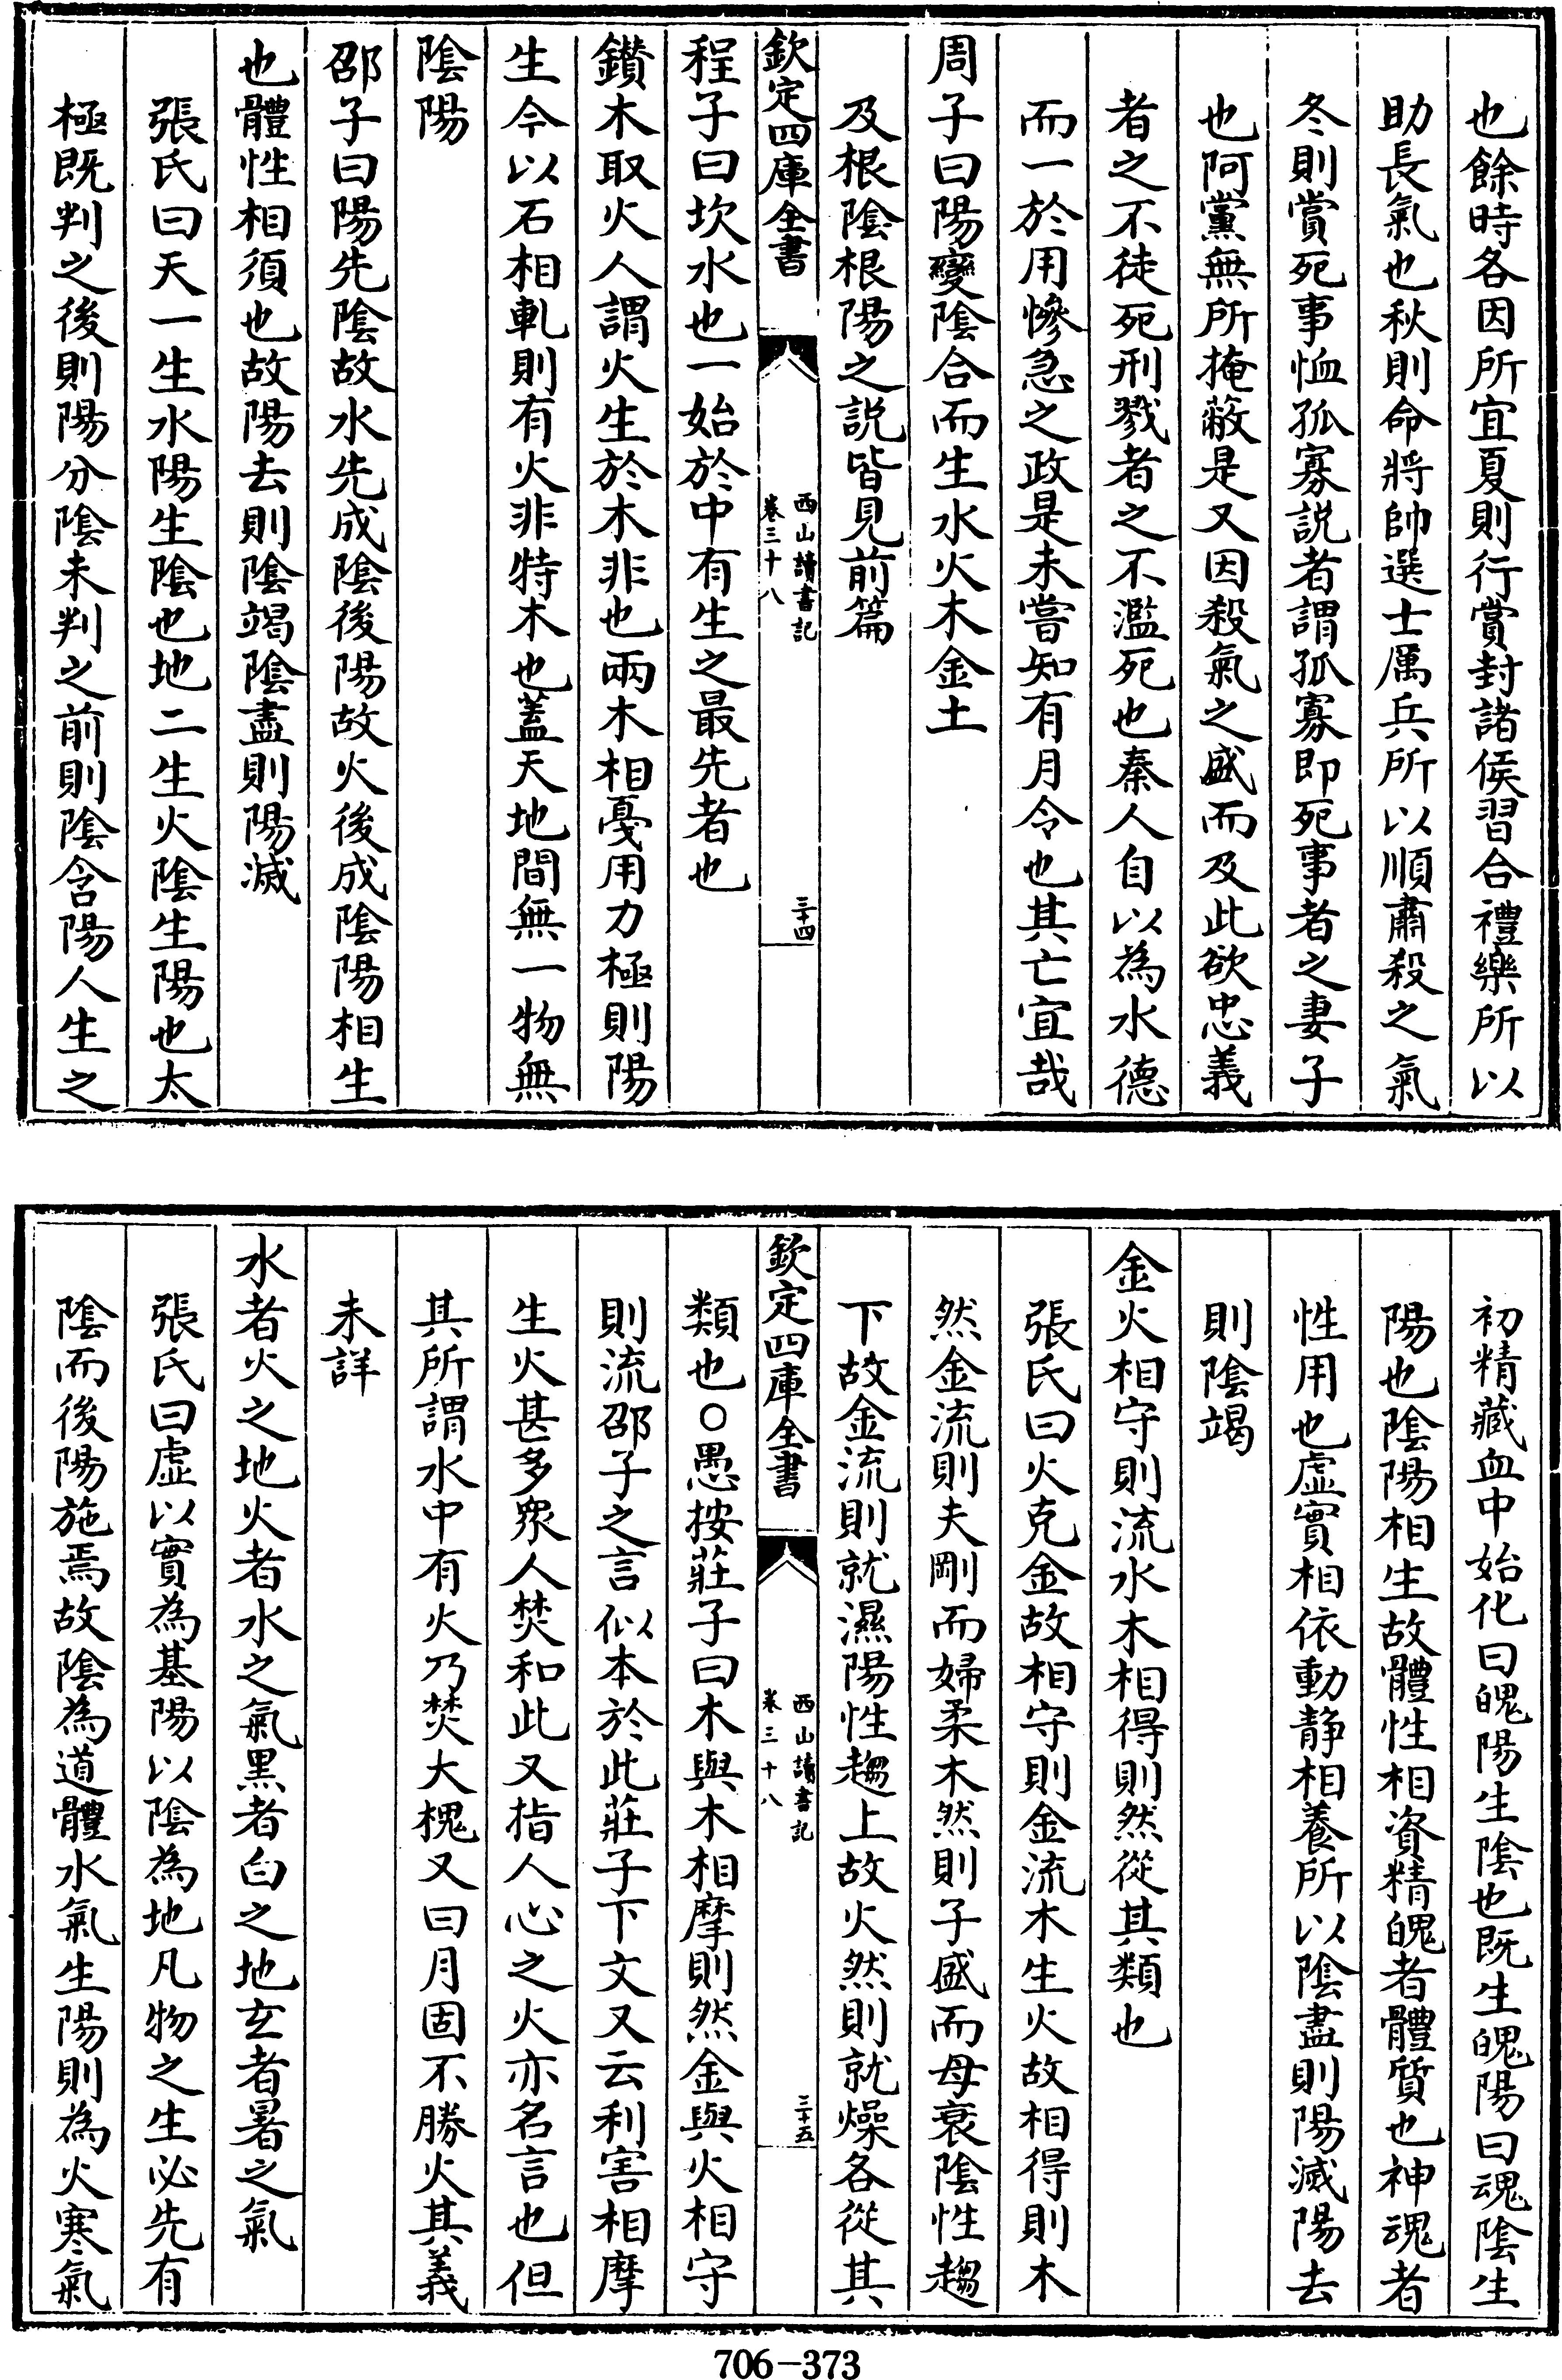 也餘時各因所宜夏則行賞封諸侯習合禮樂所以
助長氣也秋則命將帥選士厲兵所以順肅殺之氣
冬則賞死事恤孤寡説者謂孤寡即死事者之妻子
也阿黨無所掩蔽是又因殺氣之盛而及此欲忠義
者之不徒死刑戮者之不濫死也秦人自以為水德
而一於用慘急之政是未嘗知有月令也其亡宜哉
周子曰陽變陰合而生水火木金土
及根陰根陽之説皆見前篇
欽定四庫全書
西山讀書記
卷三十八
三十四
程子曰坎水也一始於中有生之最先者也
鑚木取火人謂火生於木非也兩木相戛用力極則陽
生今以石相軋則有火非特木也蓋天地間無一物無
陰陽
邵子曰陽先陰故水先成陰後陽故火後成陰陽相生
也體性相須也故陽去則陰竭陰盡則陽滅
張氏曰天一生水陽生陰也地二生火陰生陽也太
極既判之後則陽分陰未判之前則陰含陽人生之
初精藏血中始化曰魄陽生陰也既生魄陽曰魂陰生
陽也陰陽相生故體性相資精魄者體質也神魂者
性用也虛實相依動静相養所以陰盡則陽滅陽去
則陰竭
金火相守則流水木相得則然從其類也
張氏曰火克金故相守則金流木生火故相得則木
然金流則夫剛而婦柔木然則子盛而母衰陰性趨
下故金流則就濕陽性趨上故火然則就燥各從其
欽定四庫全書
西山讀書記
卷三十八
三十五
類也○愚按莊子曰木與木相摩則然金與火相守
則流邵子之言似本於此莊子下文又云利害相摩
生火甚多衆人焚和此又指人心之火亦名言也但
其所謂水中有火乃焚大槐又曰月固不勝火其義
未詳
水者火之地火者水之氣黑者白之地玄者暑之氣
張氏曰虛以實為基陽以陰為地凡物之生必先有
陰而後陽施焉故陰為道體水氣生陽則為火寒氣
706-373